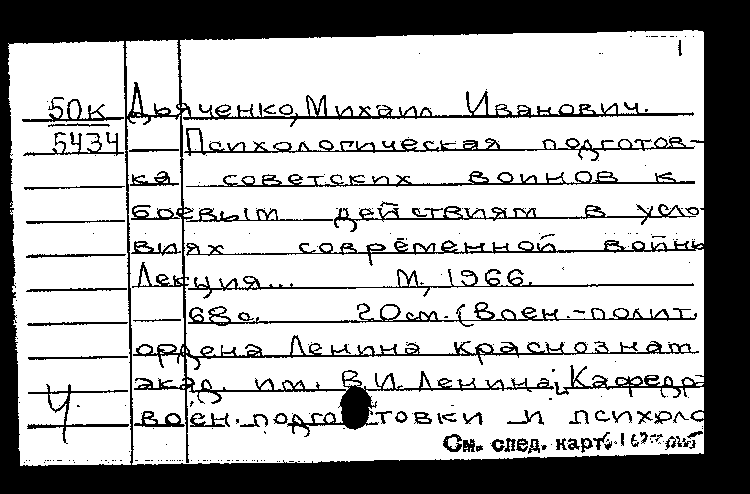 1
50К Дьяченко, Михаил Иванович.
5434 Психологическая подготов-
ка советских воинов к
боевым действиям в усло-
виях современной войны
Лекция... М., 1966.
68с. 20см. (Воен.-полит.
ордена Ленина краснознам.
акад. им. В.И. Ленина; Кафедра
Ч воен. подготовки и психоло
См. след. карт.